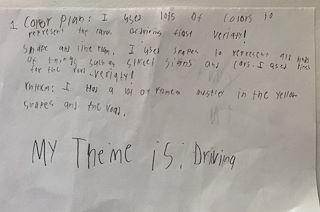 1. Color Plan: I used lots of colors to
represent the cars driving fast veriaty!
Shape and line Plan: I used shapes to represent all kinds
of things such as street signs and cars. I used lines
for the road. veriaty!
I had a lot of in the yellow
shapes and the road.
MY Theme is: Driving